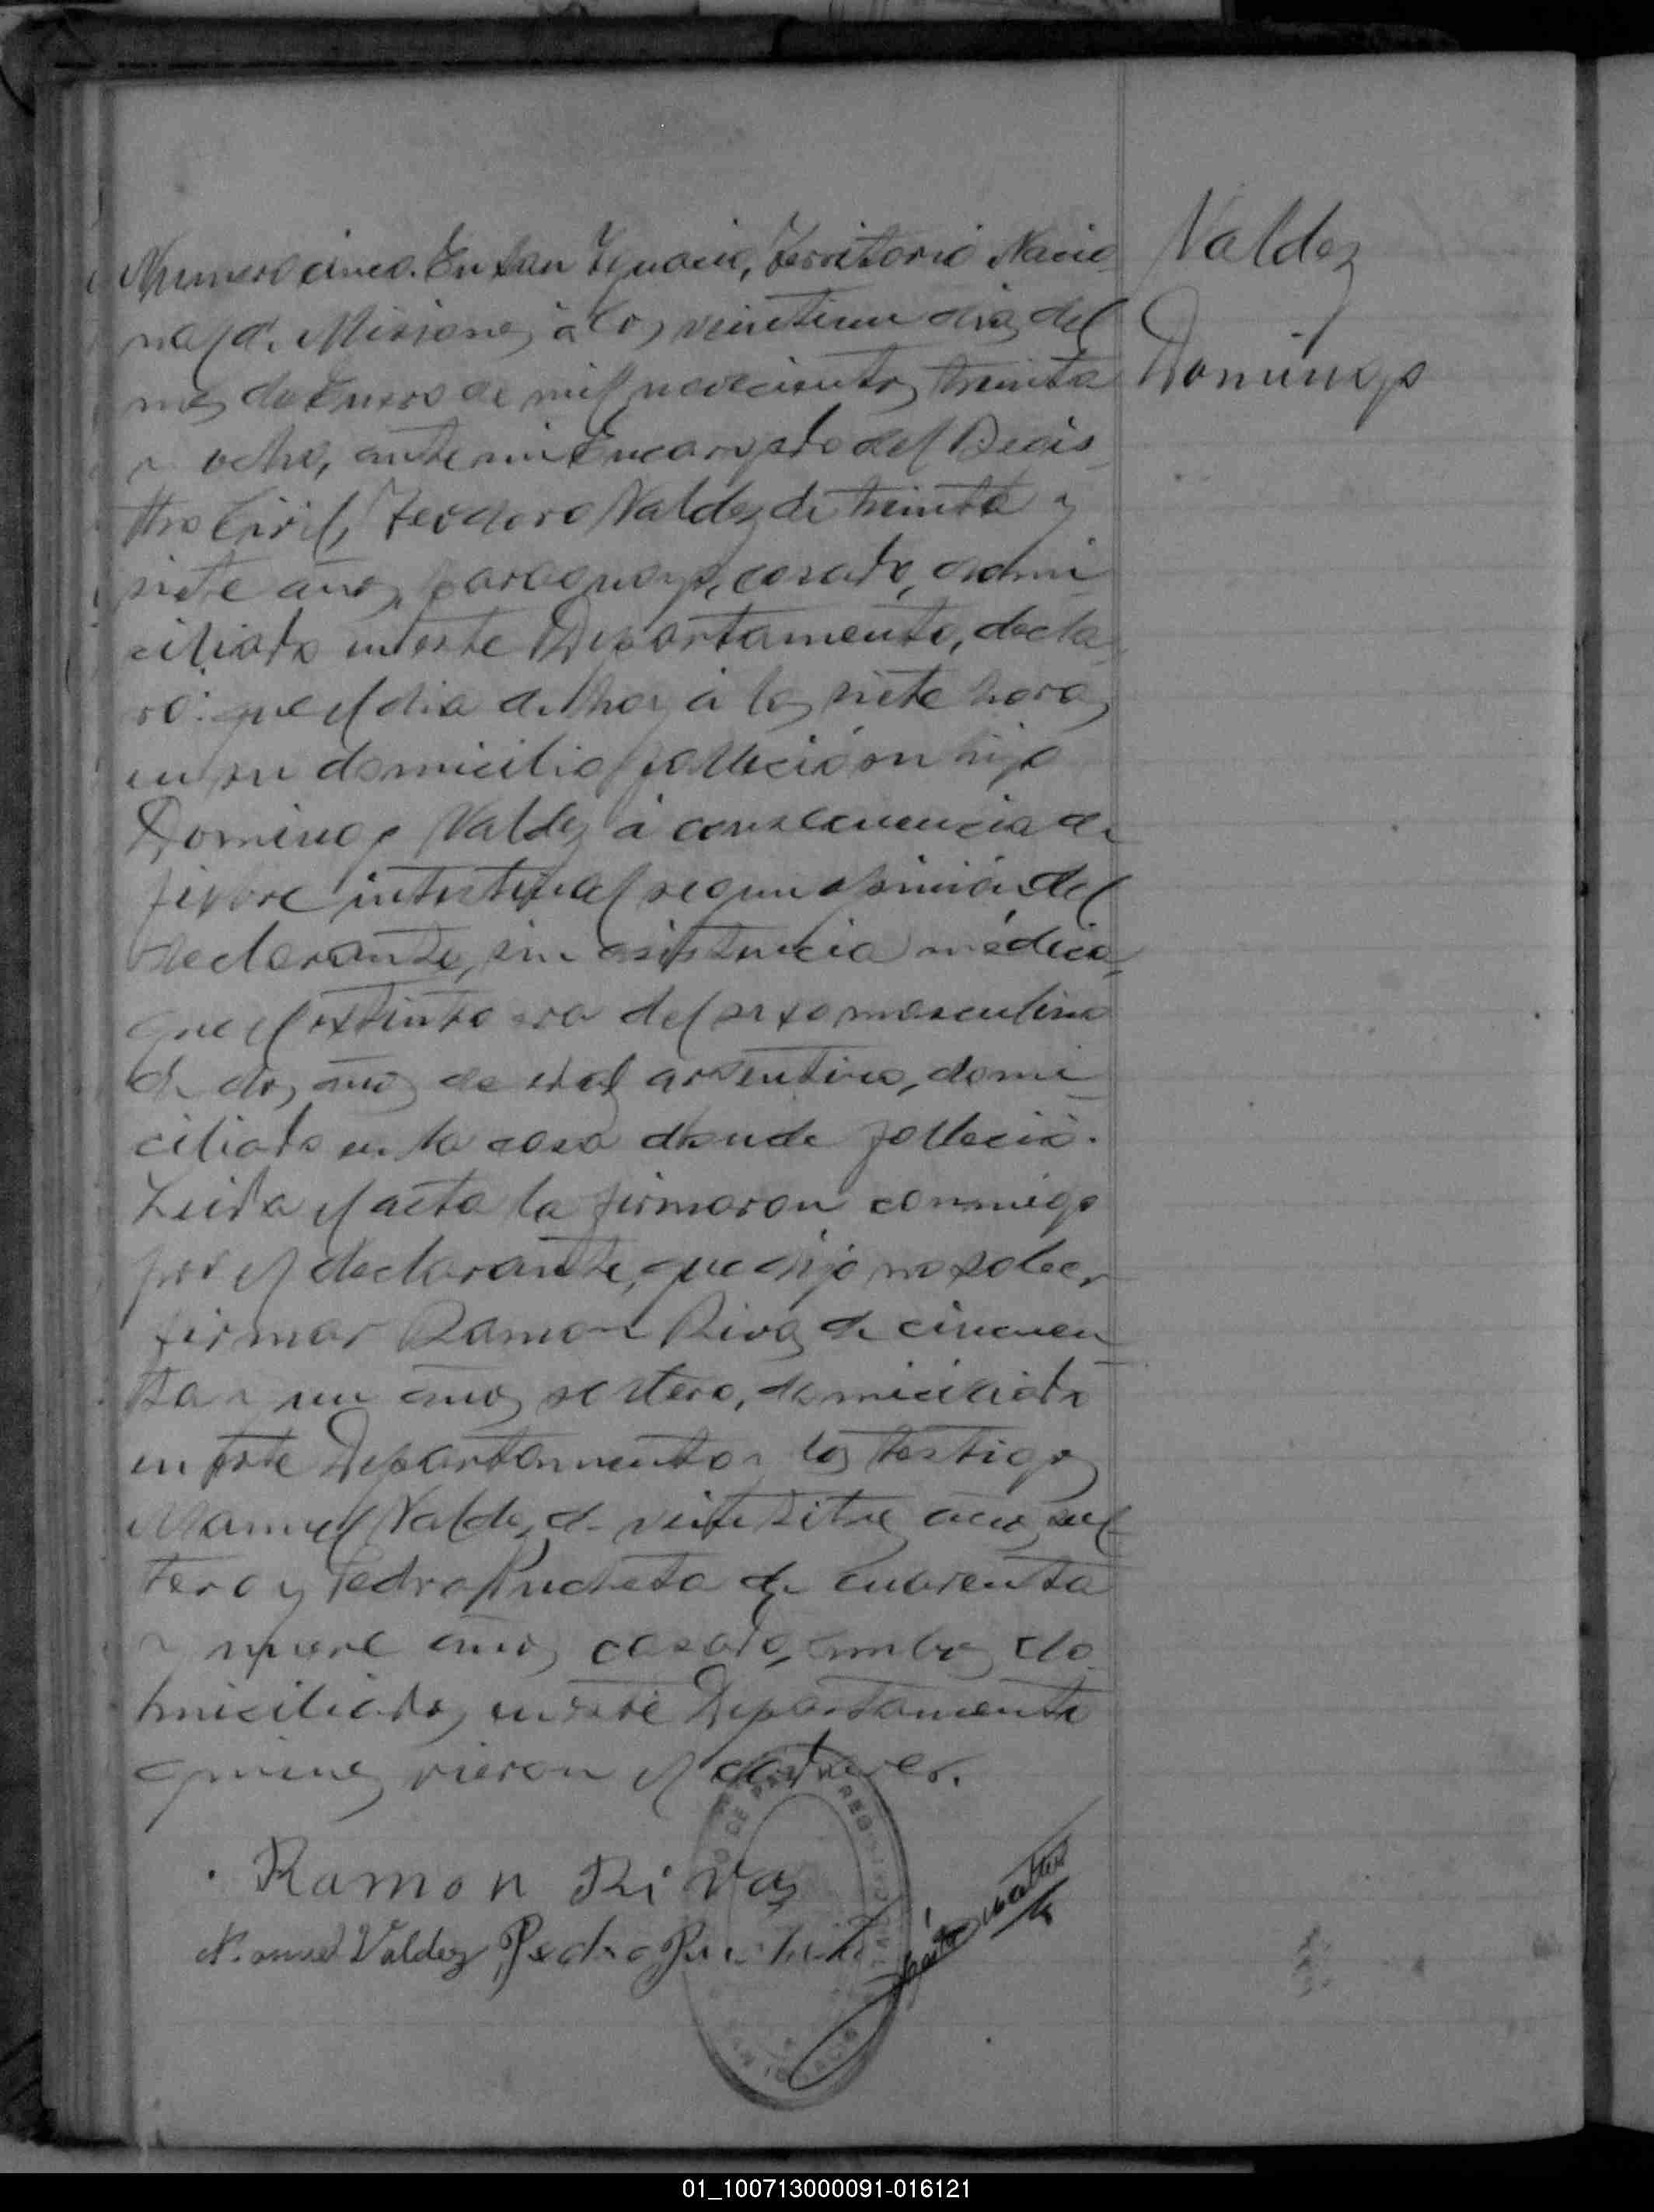 Numero cinco. En San Ignacio, Territorio Nacio
nal de Misiones, á los veintiun dias del
mes de Enero de mil novecientos treinta
y ocho, ante mi Encargado del Regis
tro Civil, Teodoro Valdez de treinta y
siete años, paraguayo, casado, domi
ciliado en este Departamento, decla
ró: que el dia de hoy á las siete horas
en su domicilio falleció su hijo
Domingo Valdez á consecuencia de
fiebre intestinal segun opinión del
declarante, sin asistencia médica,
que el extinto era del sexo masculino
de dos años de edad argentino, domi
ciliado en la casa donde falleció.
Leida el acta la firmaron conmigo
por el declarante, que dijo no saber
firmar Ramon Rivas de cincuen
ta y un años soltero, domiciliado
en este Departamento y los testigos
Manuel Valdez de veintisiete años sol
tero y Pedro Pucheta de cuarenta
y nueve años, casado, ambos do
miciliados en este Departamento
quienes vieron el cadaver.
Valdez
Domingo
Ramon Rivas
Manuel Valdez Pedro Pucheta
01_100713000091-016121